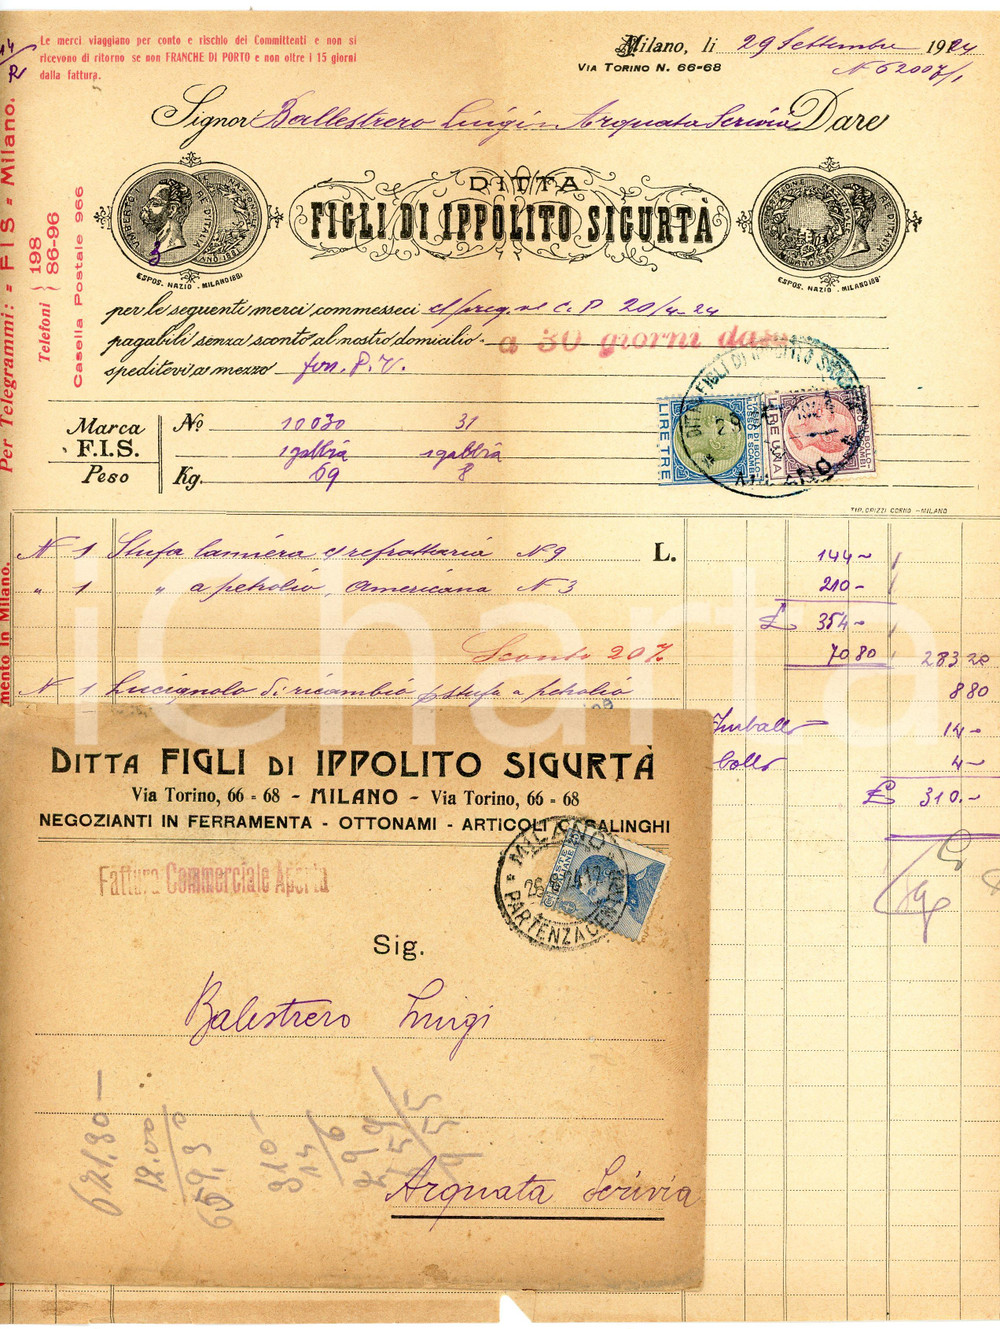 Le merci viaggiano per conto e rischio dei Committenti e non si
ricevono di ritorno se non FRANCHE DI PORTO e non oltre i 15 giorni
dalla fattura.
Milano, li 29 Settembre 1924
VIA TORINO N. 66-68
N 62007/1
Signor Ballestrero Luigi - Arquata Scrivia Dare
Per Telegrammi: = FIS = Milano.
Telefoni } 198
86-96
Casella Postale 966
DITTA
FIGLI DI IPPOLITO SIGURTÀ
UMBERTO I RE D'ITALIA
ESPOS. NAZIO. - MILANO 1881
ESPOS. NAZIO. MILANO 188
per le seguenti merci commesseci
C. P. 20/4-24
pagabili senza sconto al nostro domicilio - a 30 giorni data
speditevi a mezzo fon. P. V.
Marca
F.I.S.
Peso
No 10030 31
1 gabbia 1 gabbia
Kg. 69 8
LIRE TRE
LIRE UNA
DITTA FIGLI DI IPPOLITO SIGURTÀ
MILANO
TIP. GRIZZI CORNO - MILANO
N 1 Stufa lamiera e refrattaria N 9 L. 144-
" 1 " a petrolio, Americana N 3 210-
£ 354-
Sconto 20% 70 80 283 20
N 1 Lucignolo di ricambio p stufa a petrolio 8 80
Imballo 14-
Bollo 4-
£ 310.-
mento in Milano.
iCharta
DITTA FIGLI DI IPPOLITO SIGURTÀ
Via Torino, 66 = 68 - MILANO - Via Torino, 66 = 68
NEGOZIANTI IN FERRAMENTA - OTTONAMI - ARTICOLI CASALINGHI
Fattura Commerciale Aperta
MILANO
PARTENZA CENTRO
POSTE ITALIANE
Sig.
Balestrero Luigi
Arquata Scrivia
621,30-
12.00
659,30
310-
14
296